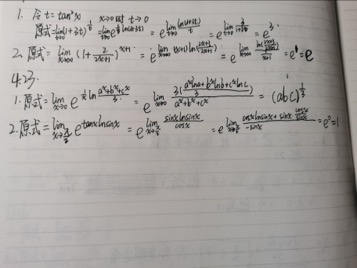 1. 令 t=tan²x  x→0时 t→0
原式=lim(t→0)(1+3t)^(1/t)=lim(t→0)e^((1/t)ln(1+3t))=e^(lim(t→0) ln(1+3t)/t)=e^(lim(t→0) 3/(1+3t))=e³.
2. 原式=lim(x→∞)(1+2/(2x+1))^(x+1)=e^(lim(x→∞)(x+1)ln((2x+3)/(2x+1)))=e^(lim(x→∞) ln((2x+3)/(2x+1))/(1/(x+1)))=e¹=e
4.23:
1. 原式=lim(x→0)e^((1/x)ln((a^x+b^x+c^x)/3))=e^(lim(x→0) 3((a^x lna+b^x lnb+c^x lnc)/3)/(a^x+b^x+c^x))=(abc)^(1/3)
2. 原式=lim(x→π/2)e^(tanx lnsinx)=e^(lim(x→π/2) sinx lnsinx/cosx)=e^(lim(x→π/2) (cosx lnsinx+sinx·cosx/sinx)/(-sinx))=e⁰=1